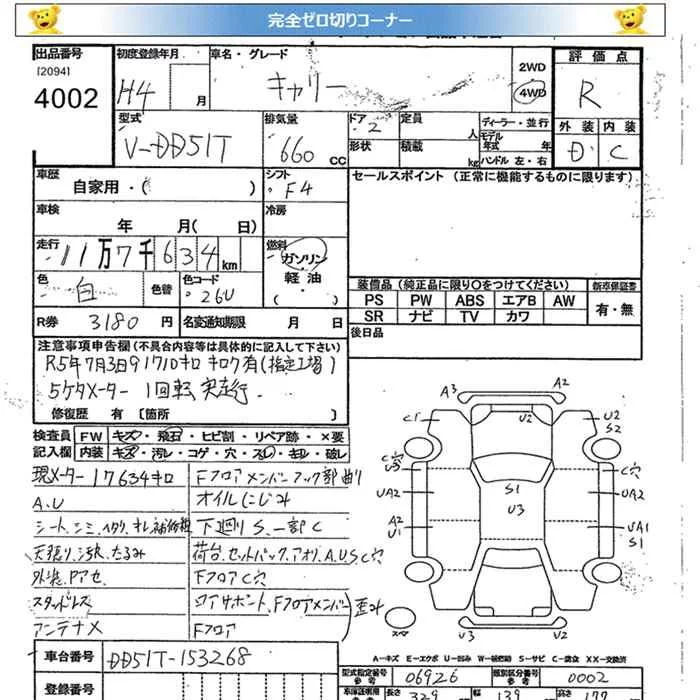 完全ゼロ切りコーナー
出品番号 初度登録年月 車名・グレード 2WD 評価点
[2094] 4002 H4 月 キャリー 4WD R
型式 排気量 ドア 定員 ディーラー・並行 外装 内装
V-DD51T 660 CC 2 人 モデル年式 年 D C
形状 積載 kg ハンドル 左・右
車歴 シフト セールスポイント (正常に機能するものに限ります)
自家用・( ) F4
車検 冷房
年 月( 日)
走行 燃料
11万7千634km ガソリン・軽油・( )
色 色替 色コード
白 26U
装備品 (純正品に限り〇をつけてください) 新車保証書
PS PW ABS エアB AW 有・無
SR ナビ TV カワ
R券 3180円 名変通知期限 月 日 後日品
注意事項申告欄 (不具合内容等は具体的に記入して下さい)
R5年7月3日91710キロ キロク有(指定工場)
5ケタメーター 1回転 実走行.
修復歴 有 [箇所 ]
検査員 FW キズ・飛石・ヒビ割・リペア跡・×要
記入欄 内装 キズ・汚レ・コゲ・穴・スレ・キレ・破レ
現メーター17634キロ
A.U
シート、シミ、ヘタリ、キレ補修種
天張り、汚れ、たるみ
外装、Pアセ
スタッドレス
アンテナX
Fフロアメンバーフック部曲り
オイルにじみ
下廻りS、一部C
荷台、セットバック、アオリ、A.U.S C穴
FフロアC穴
コアサポート、Fフロアメンバー 歪み
Fフロア
A3 A2
C1 U2 U2 S2
C穴 U3 S1 C穴
UA2 U3 UA2
A2 U1 UA1 S1
スペア U3 U2
A-キズ E-エクボ U-凹み W-補修跡 S-サビ C-腐食 XX-交換済
車台番号 DD51T-153268
型式指定番号 参考 06926 類別区分番号 参考 0002
登録番号
長さ 329 幅 139